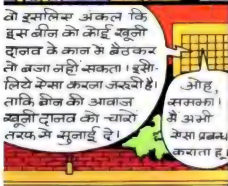 वो इसलिए अकल कि
इस बीन को कोई खूनी
दानव के कान में बैठकर
तो बजा नहीं सकता। इसी-
लिये ऐसा करना जरूरी है।
ताकि बीन की आवाज
खूनी दानव को चारों
तरफ से सुनाई दे।
ओह,
समझा।
मैं अभी
ऐसा प्रबन्ध
कराता हूं।